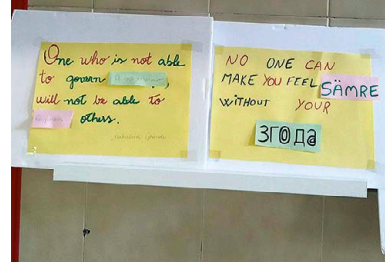 One who is not able
to govern
will not be able to
others.
NO ONE CAN
MAKE YOU FEEL SÄMRE
WITHOUT YOUR
ЗГОДа